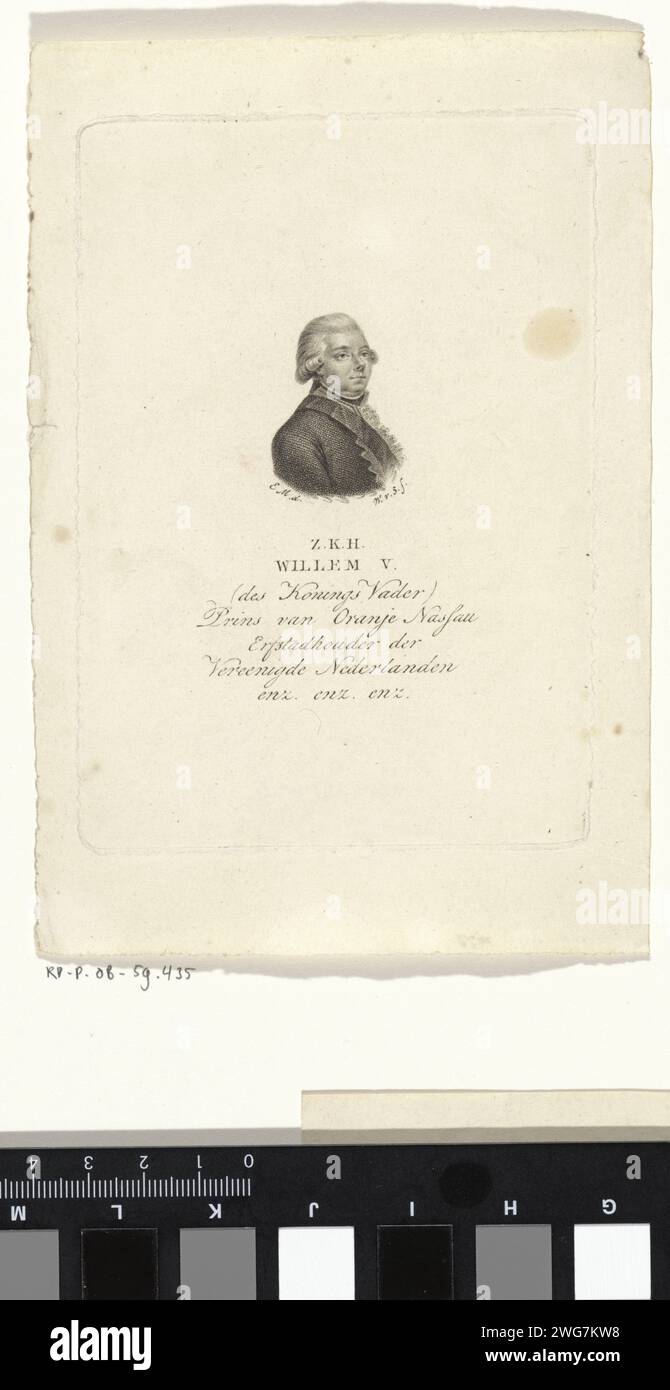 E.M.d.
W.v.S.f.
Z.K.H.
WILLEM V.
(des Konings Vader)
Prins van Oranje Naſsau
Erfstadhouder der
Vereenigde Nederlanden
enz. enz. enz.
RP-P-OB-59.435
4 3 2 1 0
M L K J I H G
alamy
alamy
Image ID: 2WG7KW8
www.alamy.com